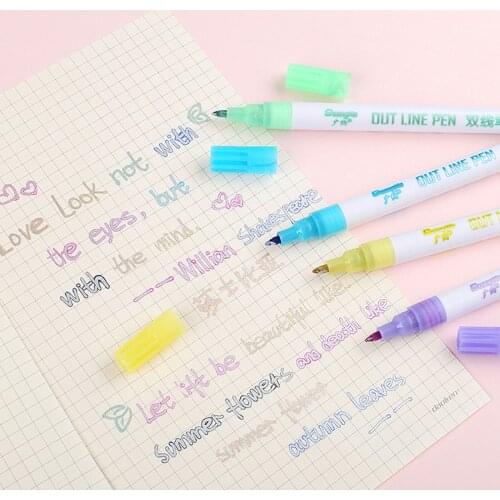 Love Look not with
the eyes, but
with the mind.
—— Willian Shakespeare
Let it ft be beautiful like
Summer flowers and death like
Summer flowers autumn leaves
OUT LINE PEN 双线
OUT LINE PEN
OUT